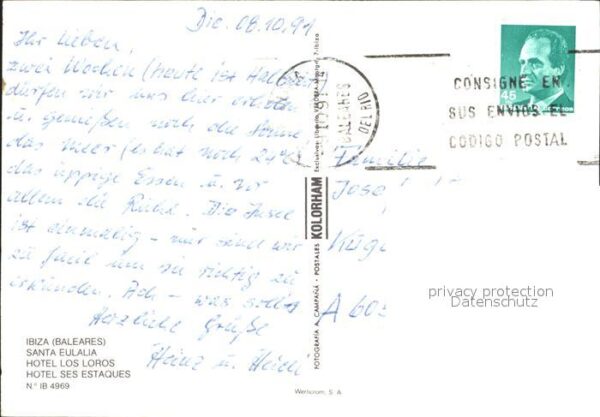 Die. 08.10.91
Ihr Lieben,
zwei Wochen (heute ist Halbzeit)
dürfen wir uns hier erholen
u. genießen noch die Sonne
das Meer (es hat noch 24°)
das üppige Essen u. vor
allem die Ruhe. Die Insel
ist einmalig – nur sind wir
zu faul um sie richtig zu
erkunden. Ach – was solls
Herzliche Grüße
Heinz u. Heidi
IBIZA (BALEARES)
SANTA EULALIA
HOTEL LOS LOROS
HOTEL SES ESTAQUES
N.º IB 4969
FOTOGRAFÍA A. CAMPAÑÁ - POSTALES KOLORHAM
Werlscrom, S. A.
BALEARES
DEL RIO
45
CONSIGNE EN
SUS ENVIOS EL
CODIGO POSTAL
Familie
José
A 603
privacy protection
Datenschutz